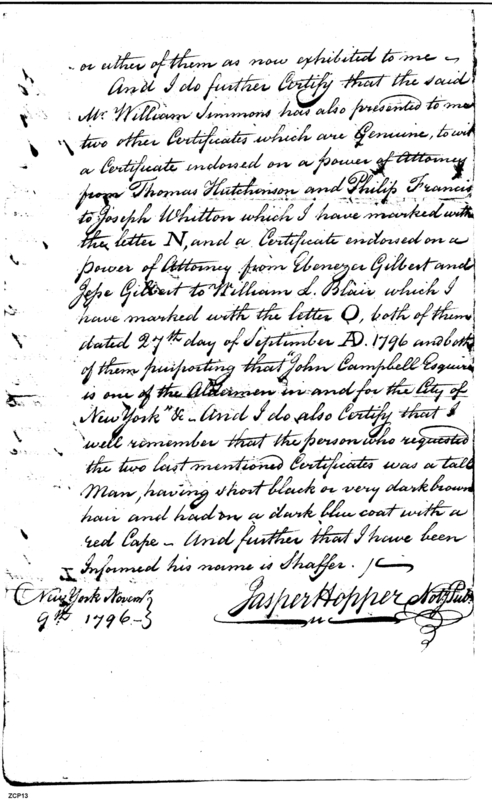 or either of them as now exhibited to me ~
And I do further Certify that the said
Mr. William Simmons has also presented to me
two other Certificates which are Genuine, to wit
a Certificate endorsed on a power of Attorney
from Thomas Hutchinson and Philip Francis
to Joseph Whitton which I have marked with
the letter N, and a Certificate endorsed on a
power of Attorney from Ebenezer Gilbert and
Jesse Gilbert to William L. Blair which I
have marked with the letter O, both of them
dated 27th day of September AD. 1796 and both
of them purporting that "John Campbell Esquire
is one of the Aldermen in and for the City of
New York" &c - And I do also Certify that I
well remember that the person who requested
the two last mentioned Certificates was a tall
Man, having short black or very dark brown
hair and had on a dark blue coat with a
red Cape - And further that I have been
Informed his name is Shaffer.
New York Novemr.
9th 1796 -
Jasper Hopper Noty Pub.
ZCP13